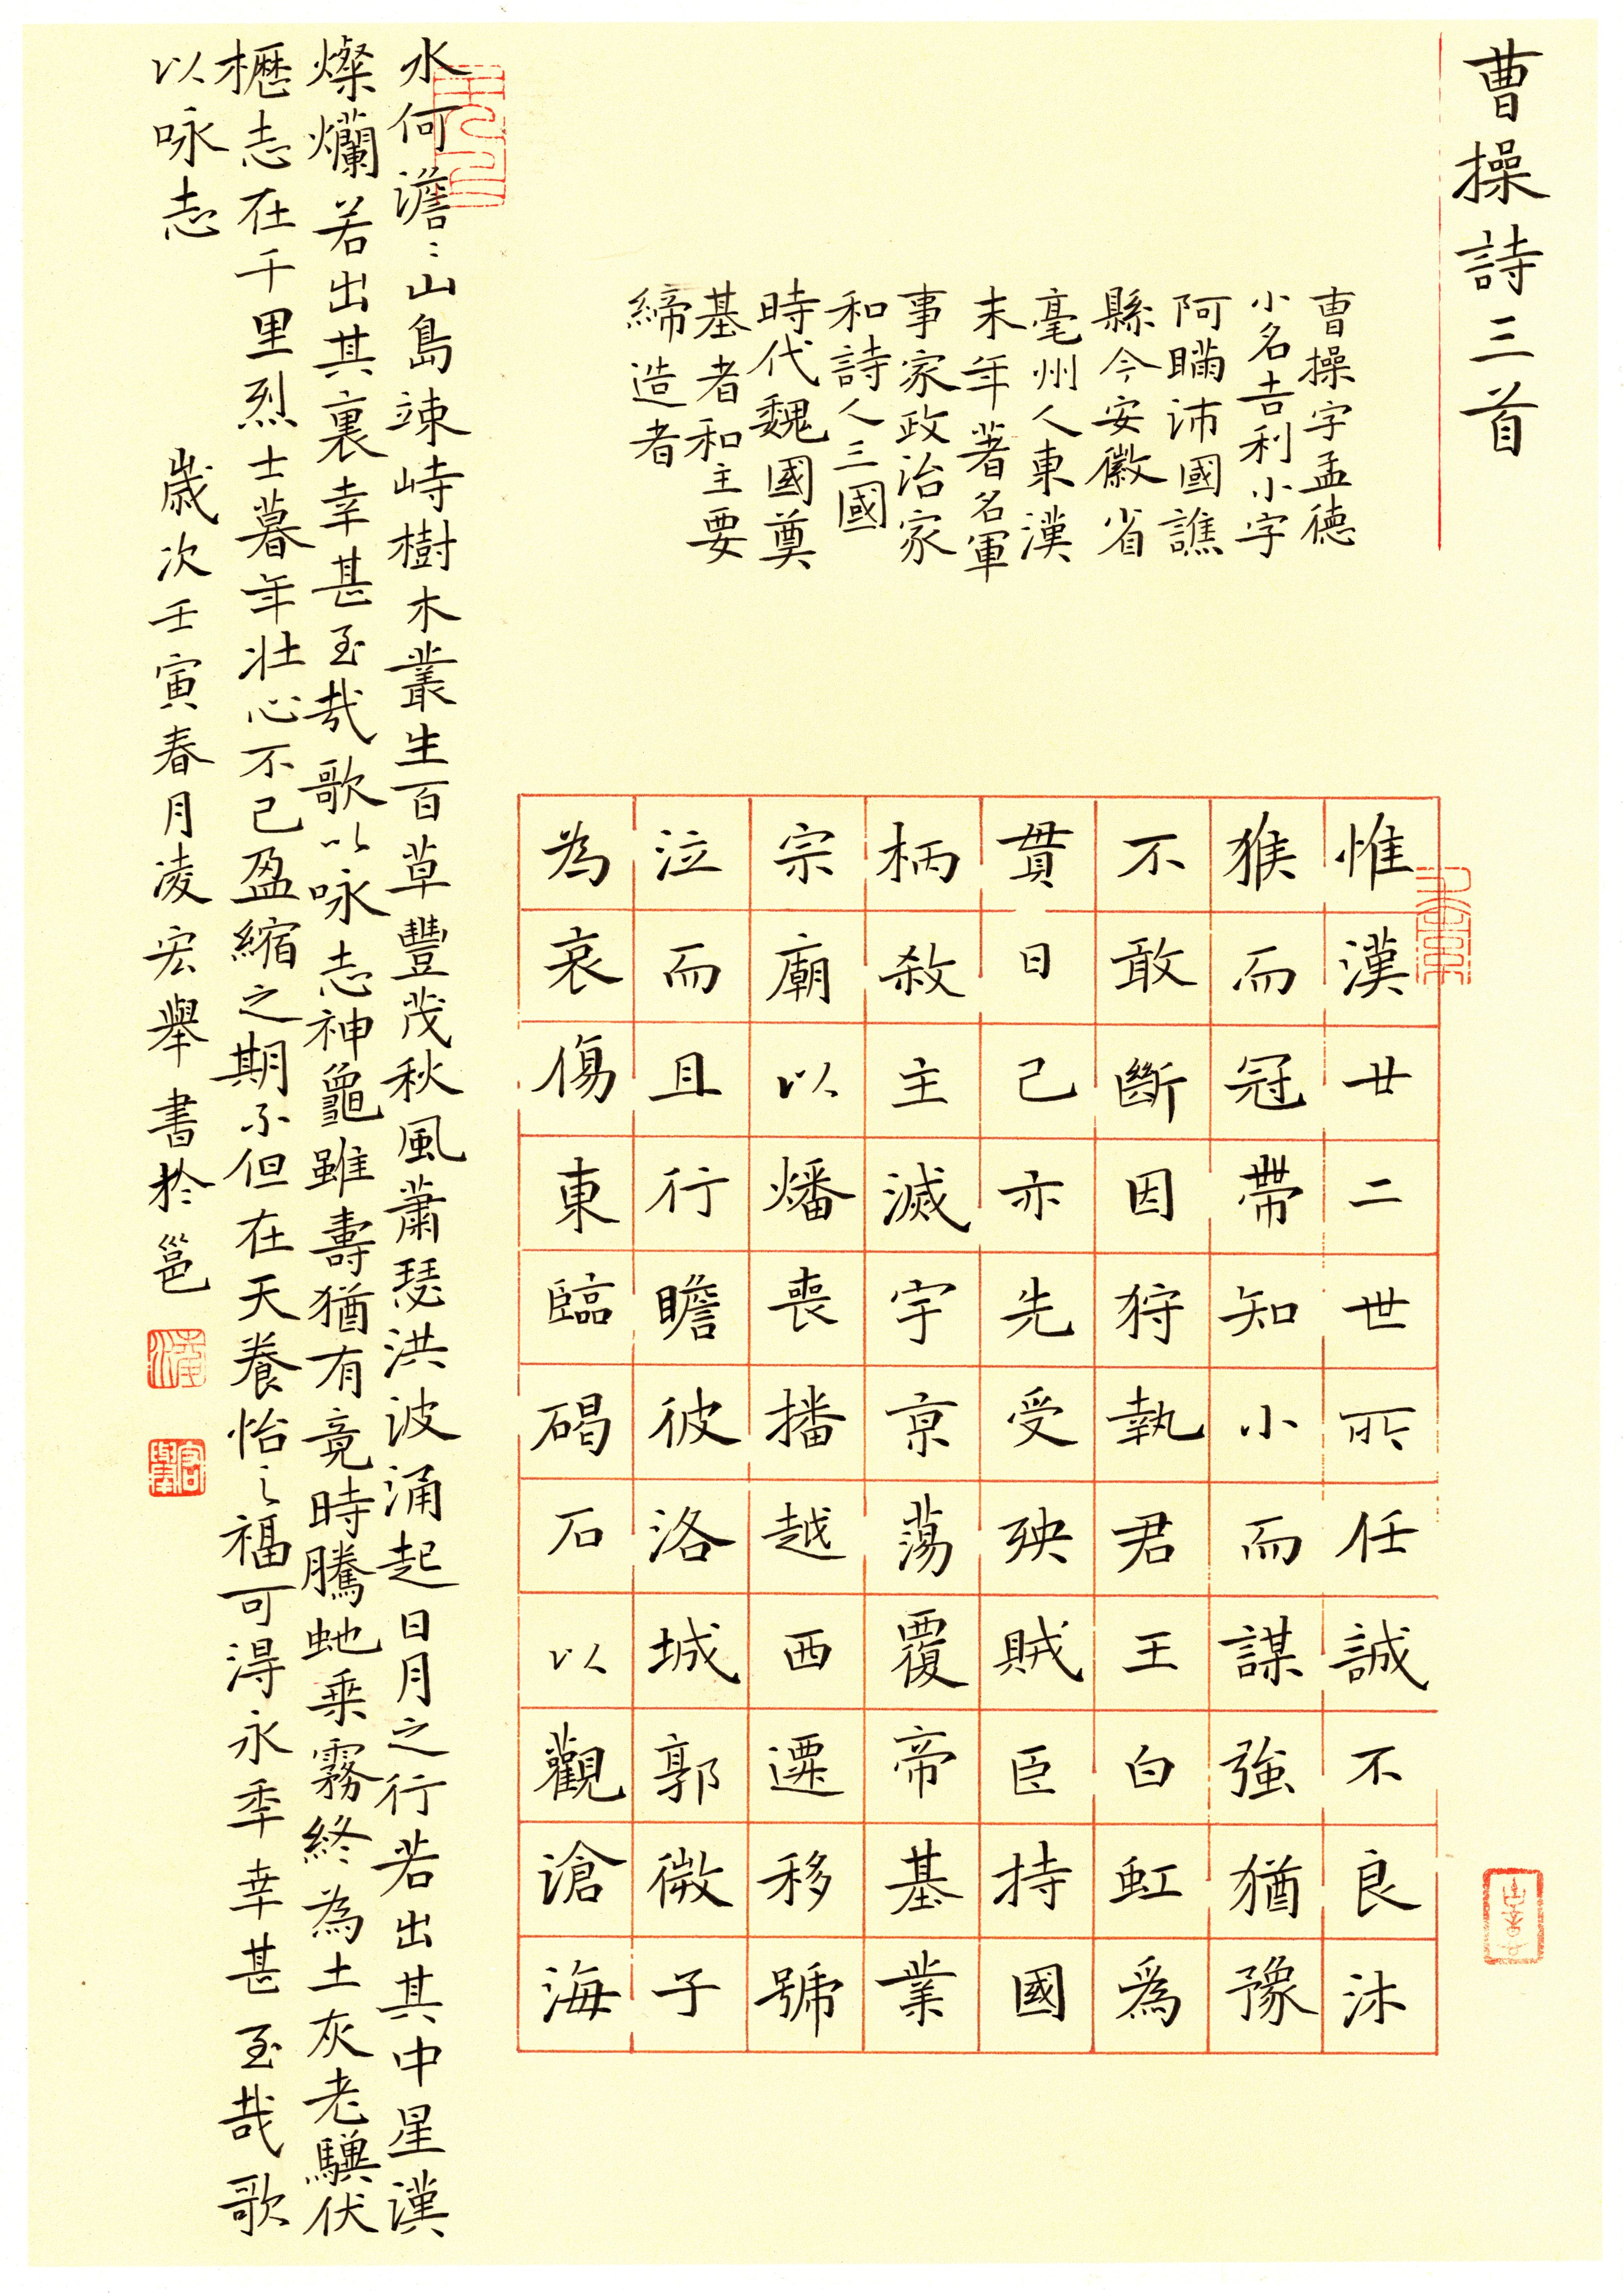 曹操詩三首
曹操字孟德
小名吉利小字
阿瞞沛國譙
縣今安徽省
毫州人東漢
末年著名軍
事家政治家
和詩人三國
時代魏國奠
基者和主要
締造者
惟漢廿二世所任誠不良沐
猴而冠帶知小而謀強猶豫
不敢斷因狩執君王白虹爲
貫日己亦先受殃賊臣持國
柄殺主滅宇京蕩覆帝基業
宗廟以燔喪播越西遷移號
泣而且行瞻彼洛城郭微子
為哀傷東臨碣石以觀滄海
水何澹〻山島竦峙樹木叢生百草豐茂秋風蕭瑟洪波涌起日月之行若出其中星漢
燦爛若出其裏幸甚至哉歌以咏志神龜雖壽猶有竟時騰虵乘霧終為土灰老驥伏
櫪志在千里烈士暮年壯心不已盈縮之期不但在天養怡之福可得永年幸甚至哉歌
以咏志 歲次壬寅春月凌宏舉書於邕